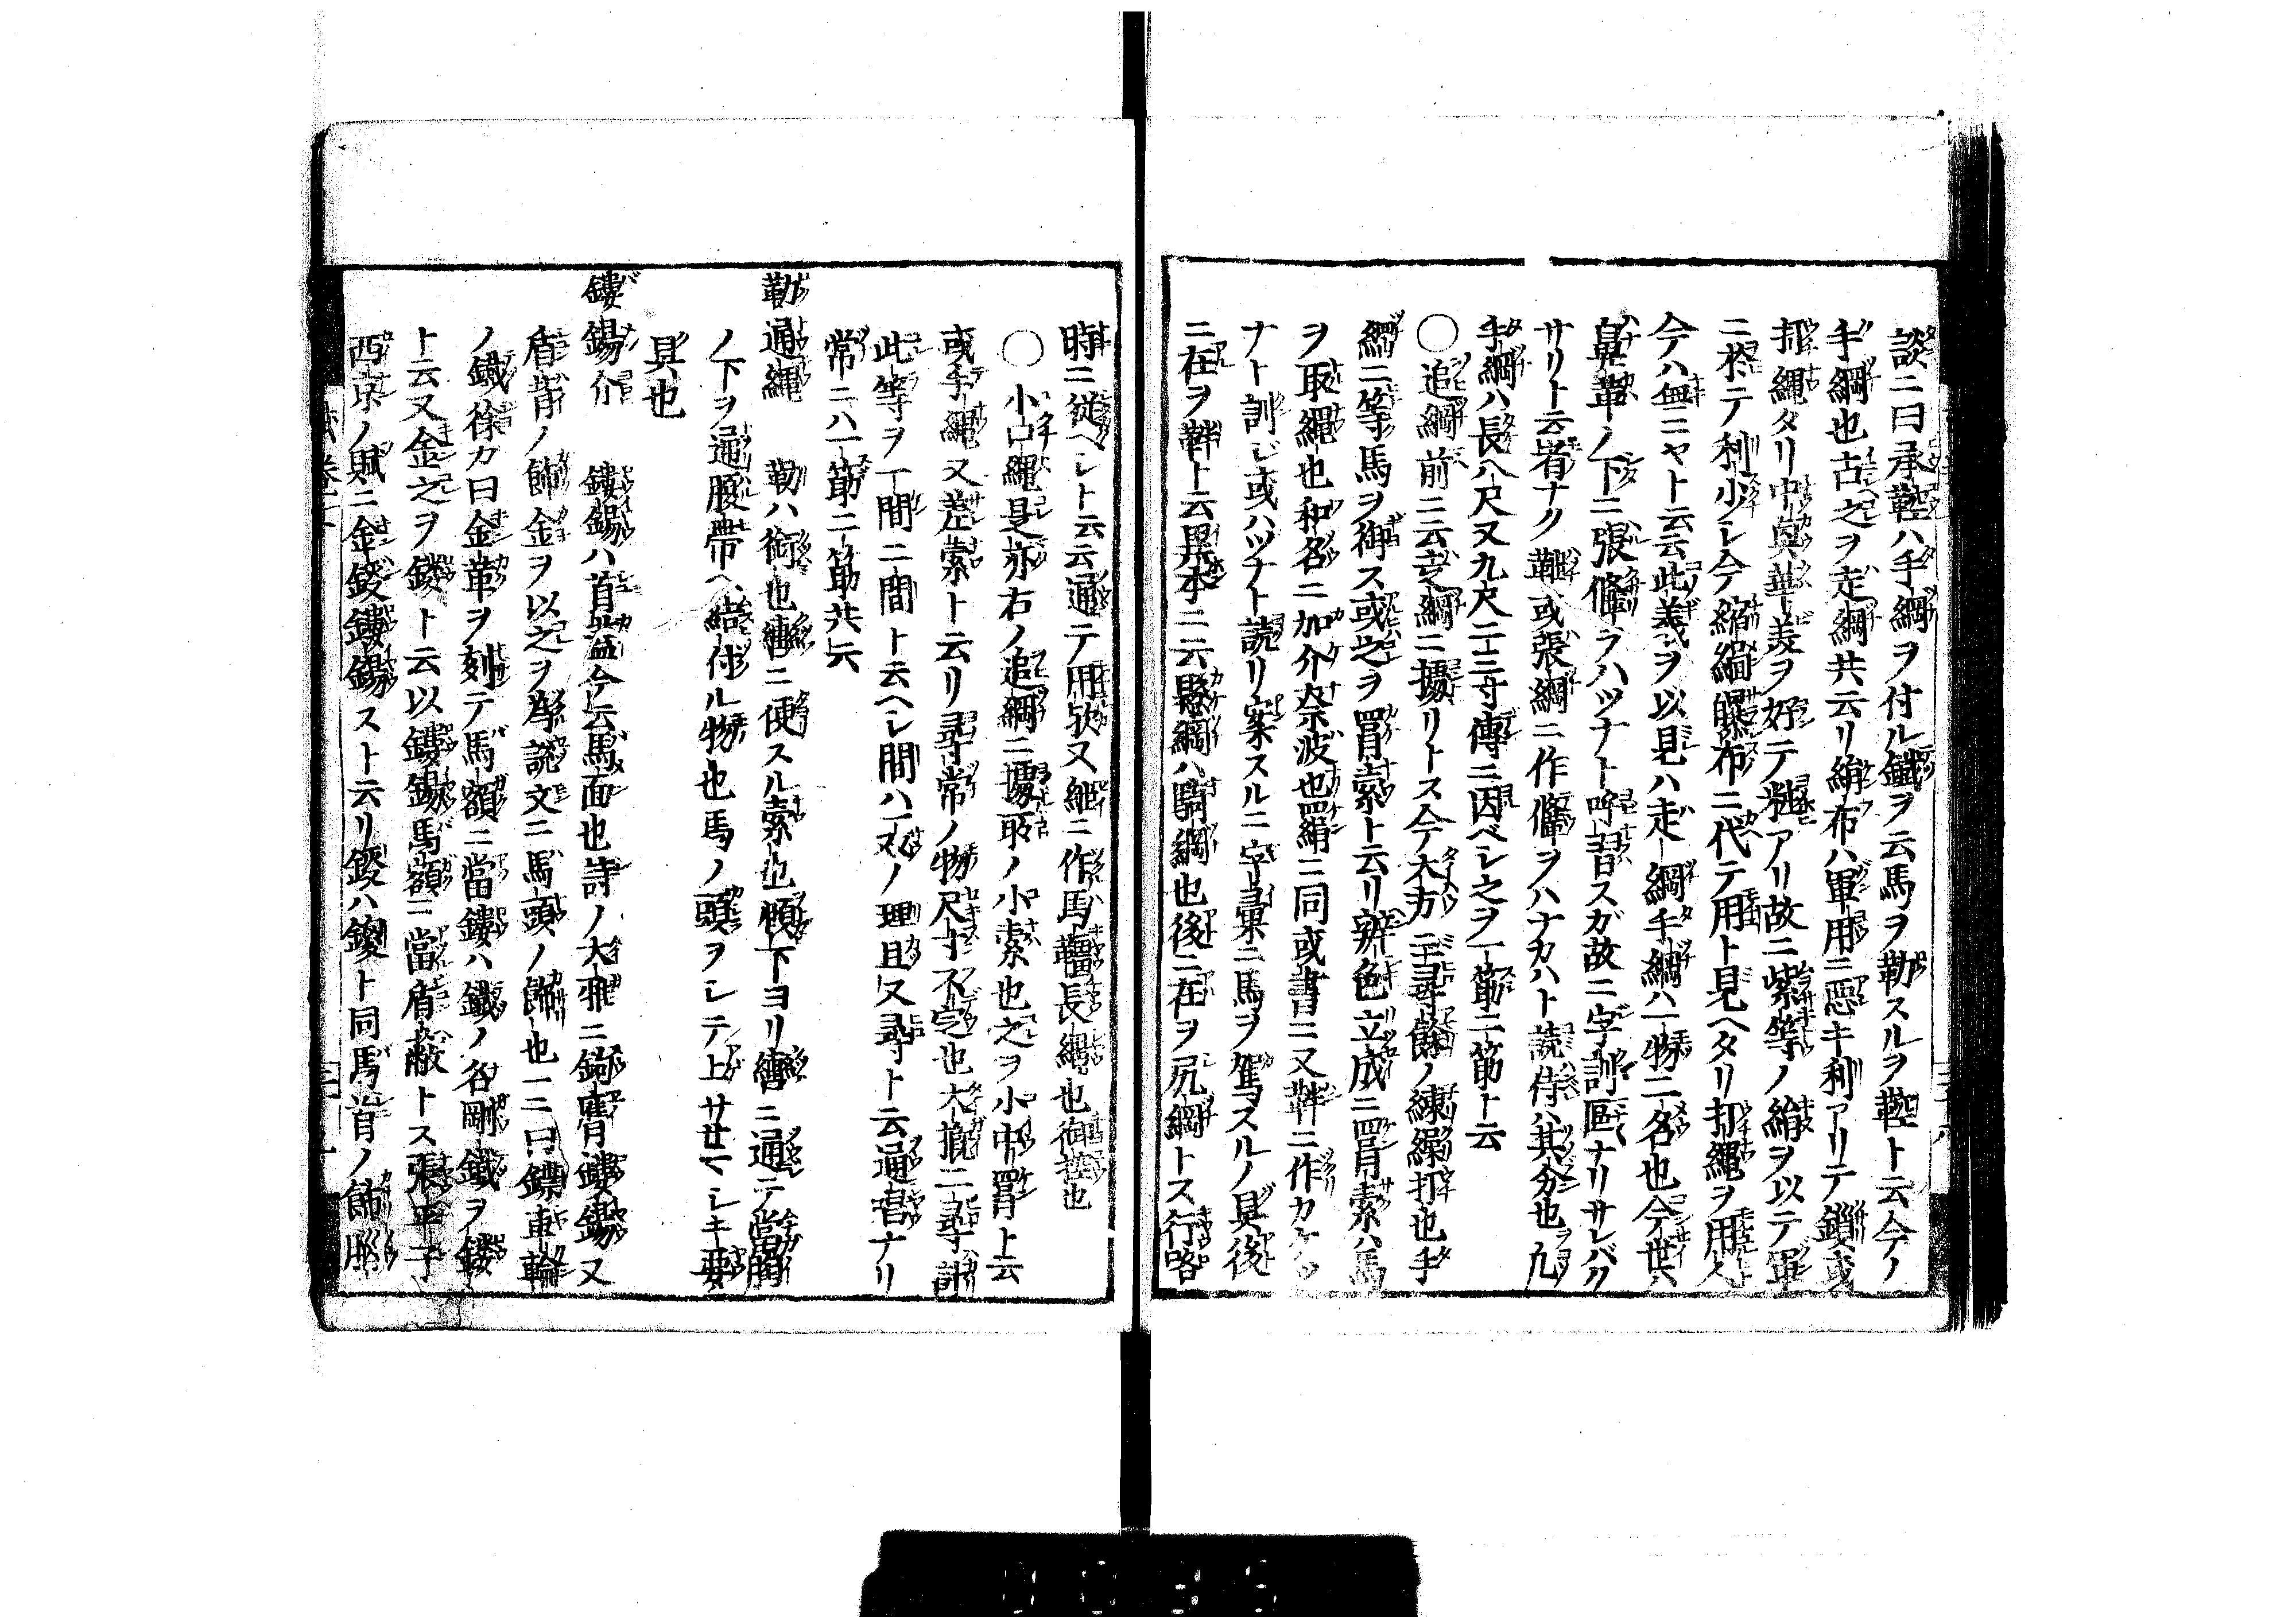 談ニ曰承鞚ハ手綱ヲ付ル鐵ヲ云馬ヲ勒スルヲ鞚ト云今ノ
手綱也古之ヲ走綱共云リ絹布ハ軍用ニ惡キ利アリテ鎖或
打繩タリ中奥華美ヲ好テ粧アリ故ニ紫等ノ絹ヲ以テ軍
ニ於テ利少レ今縮緬曝布ニ代テ用ト見ヘタリ打繩ヲ用人
今ハ無ニヤト云云此義ヲ以見ハ走綱手綱ハ一物二名也今世ハ
鼻革ノ下ニ張鞗ラハツナト呼習スガ故ニ字訓區ナリサレバク
サリト云者ナク鞚或張綱ニ作鞗ヲハナカハト読侍ハ其分也凡
手綱ハ長八尺又九尺二三寸傳ニ因ベレ之ヲ一筋二筋ト云
○追綱前ニ云走綱ニ據リトス今大方二三尋餘ノ練繰打也手
綱ニ等馬ヲ御ス或之ヲ罥索ト云リ辨色立成ニ罥索ハ馬
ヲ取繩也和名ニ加介奈波也罥絹ニ同或書ニ又鞊ニ作カケ
ナト訓じ或ハツナト読リ案スルニ字彙ニ馬ヲ駕スルノ具後
ニ在ヲ鞊ト云異本ニ云懸綱ハ騎綱也後ニ在ヲ尻綱トス行路
時ニ従ヘレト云云通テ用欤又紲ニ作馬韁長繩也御鞚也
○小口繩是亦右ノ追綱ニ據取ノ小索也之ヲ小中罥ト云
或手繩又差索ト云リ尋常ノ物尺寸不定也大概二尋計
此等ヲ一間二間ト云ヘレ間ハ一双ノ理且又尋ト云通音ナリ
常ニハ一筋二筋共云
勒通繩 勒ハ銜也轡ニ便スル索也頬下ヨリ轡ニ通テ當胸
ノ下ヲ通腹帶ヘ結付ル物也馬ノ頭ヲレテ上サセマレキ要
具也
鏤鍚介 鏤鍚ハ首盔今云馬面也詩ノ大雅ニ鉤膺鏤鍚又
眉背ノ飾金ヲ以之ヲ為説文ニ馬頭ノ飾也一ニ曰鏢車輪
ノ鐵徐カ曰金革ヲ刻テ馬額ニ當鏤ハ鐵ノ名剛鐵ヲ鏤
ト云又金之ヲ鏤ト云以鏤鍚馬額ニ當眉蔽トス張平子
西京ノ賦ニ金鍐鏤鍚スト云リ鍐ハ鑁ト同馬首ノ飾